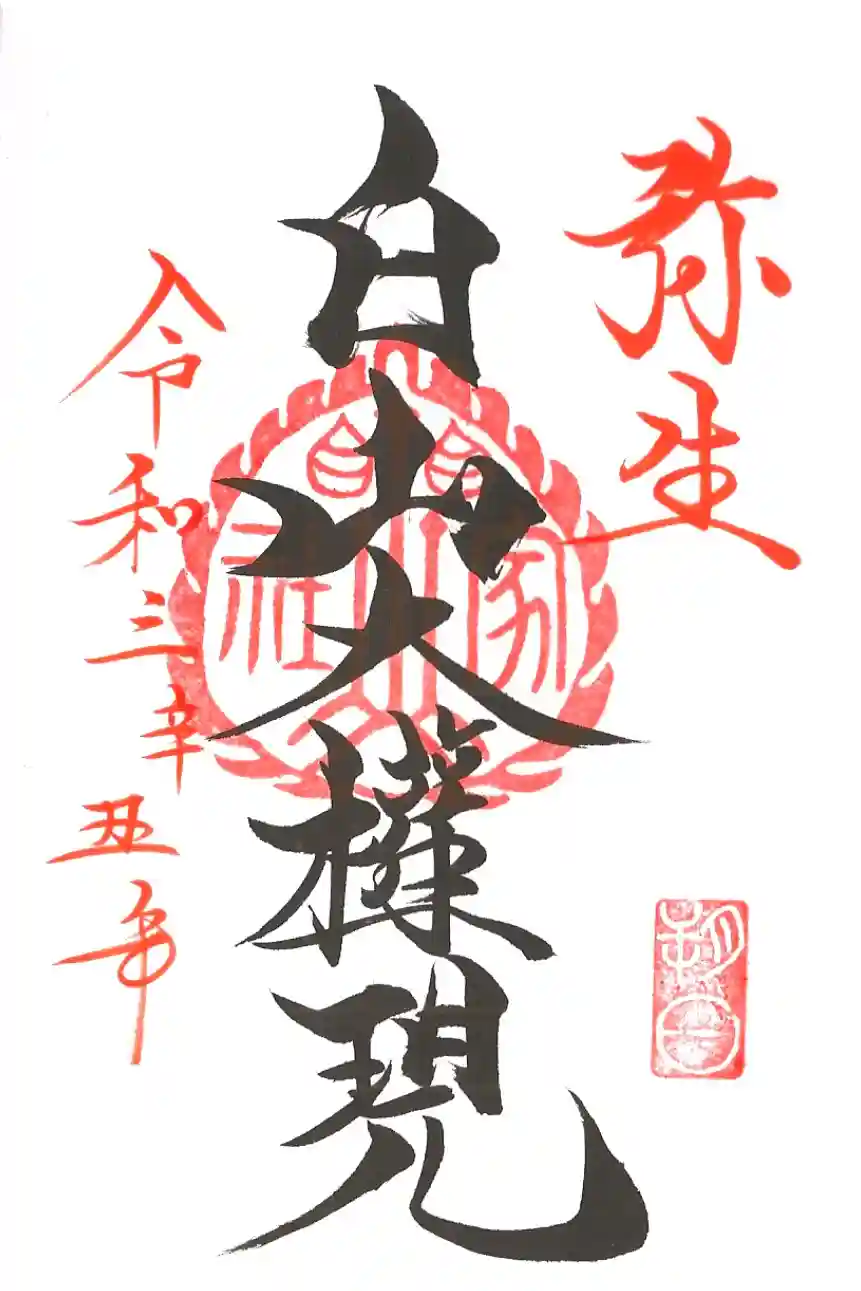 弥生
白山大権現
令和三辛丑年